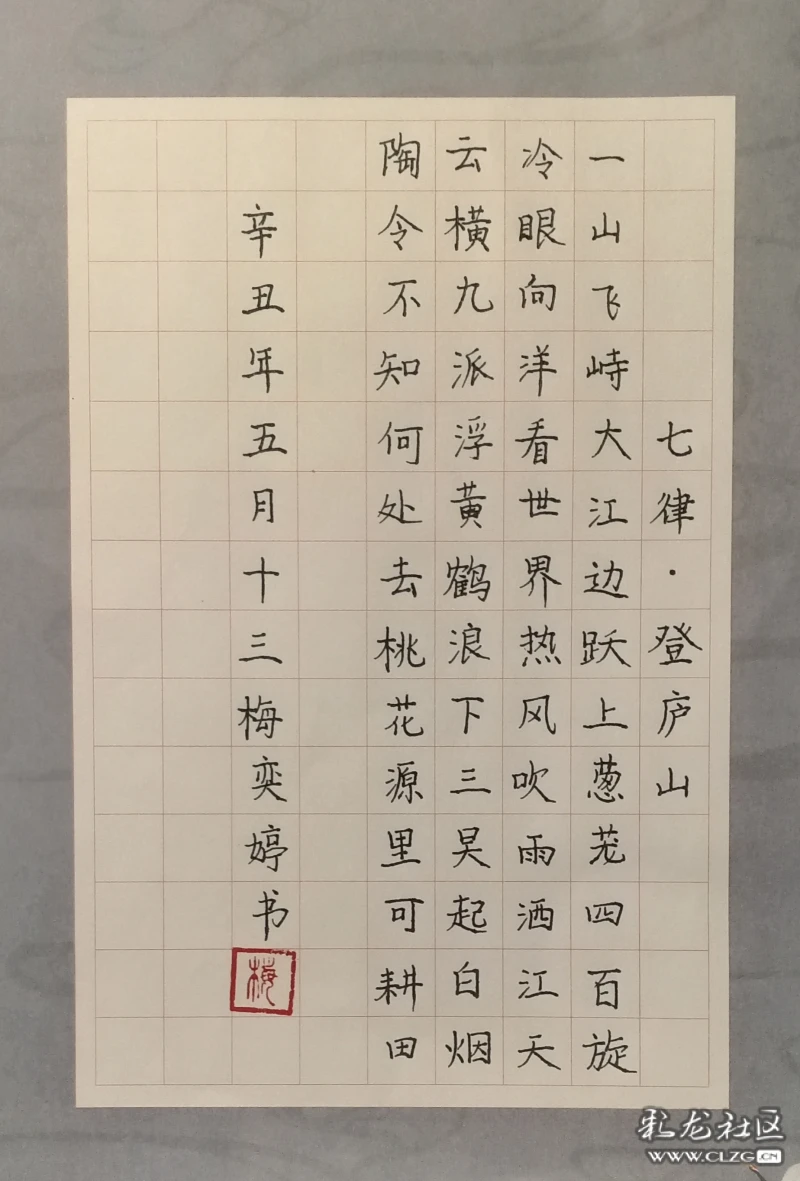 七律·登庐山
一山飞峙大江边跃上葱茏四百旋
冷眼向洋看世界热风吹雨洒江天
云横九派浮黄鹤浪下三吴起白烟
陶令不知何处去桃花源里可耕田
辛丑年五月十三梅奕婷书
梅
彩龙社区
WWW.CLZG.CN